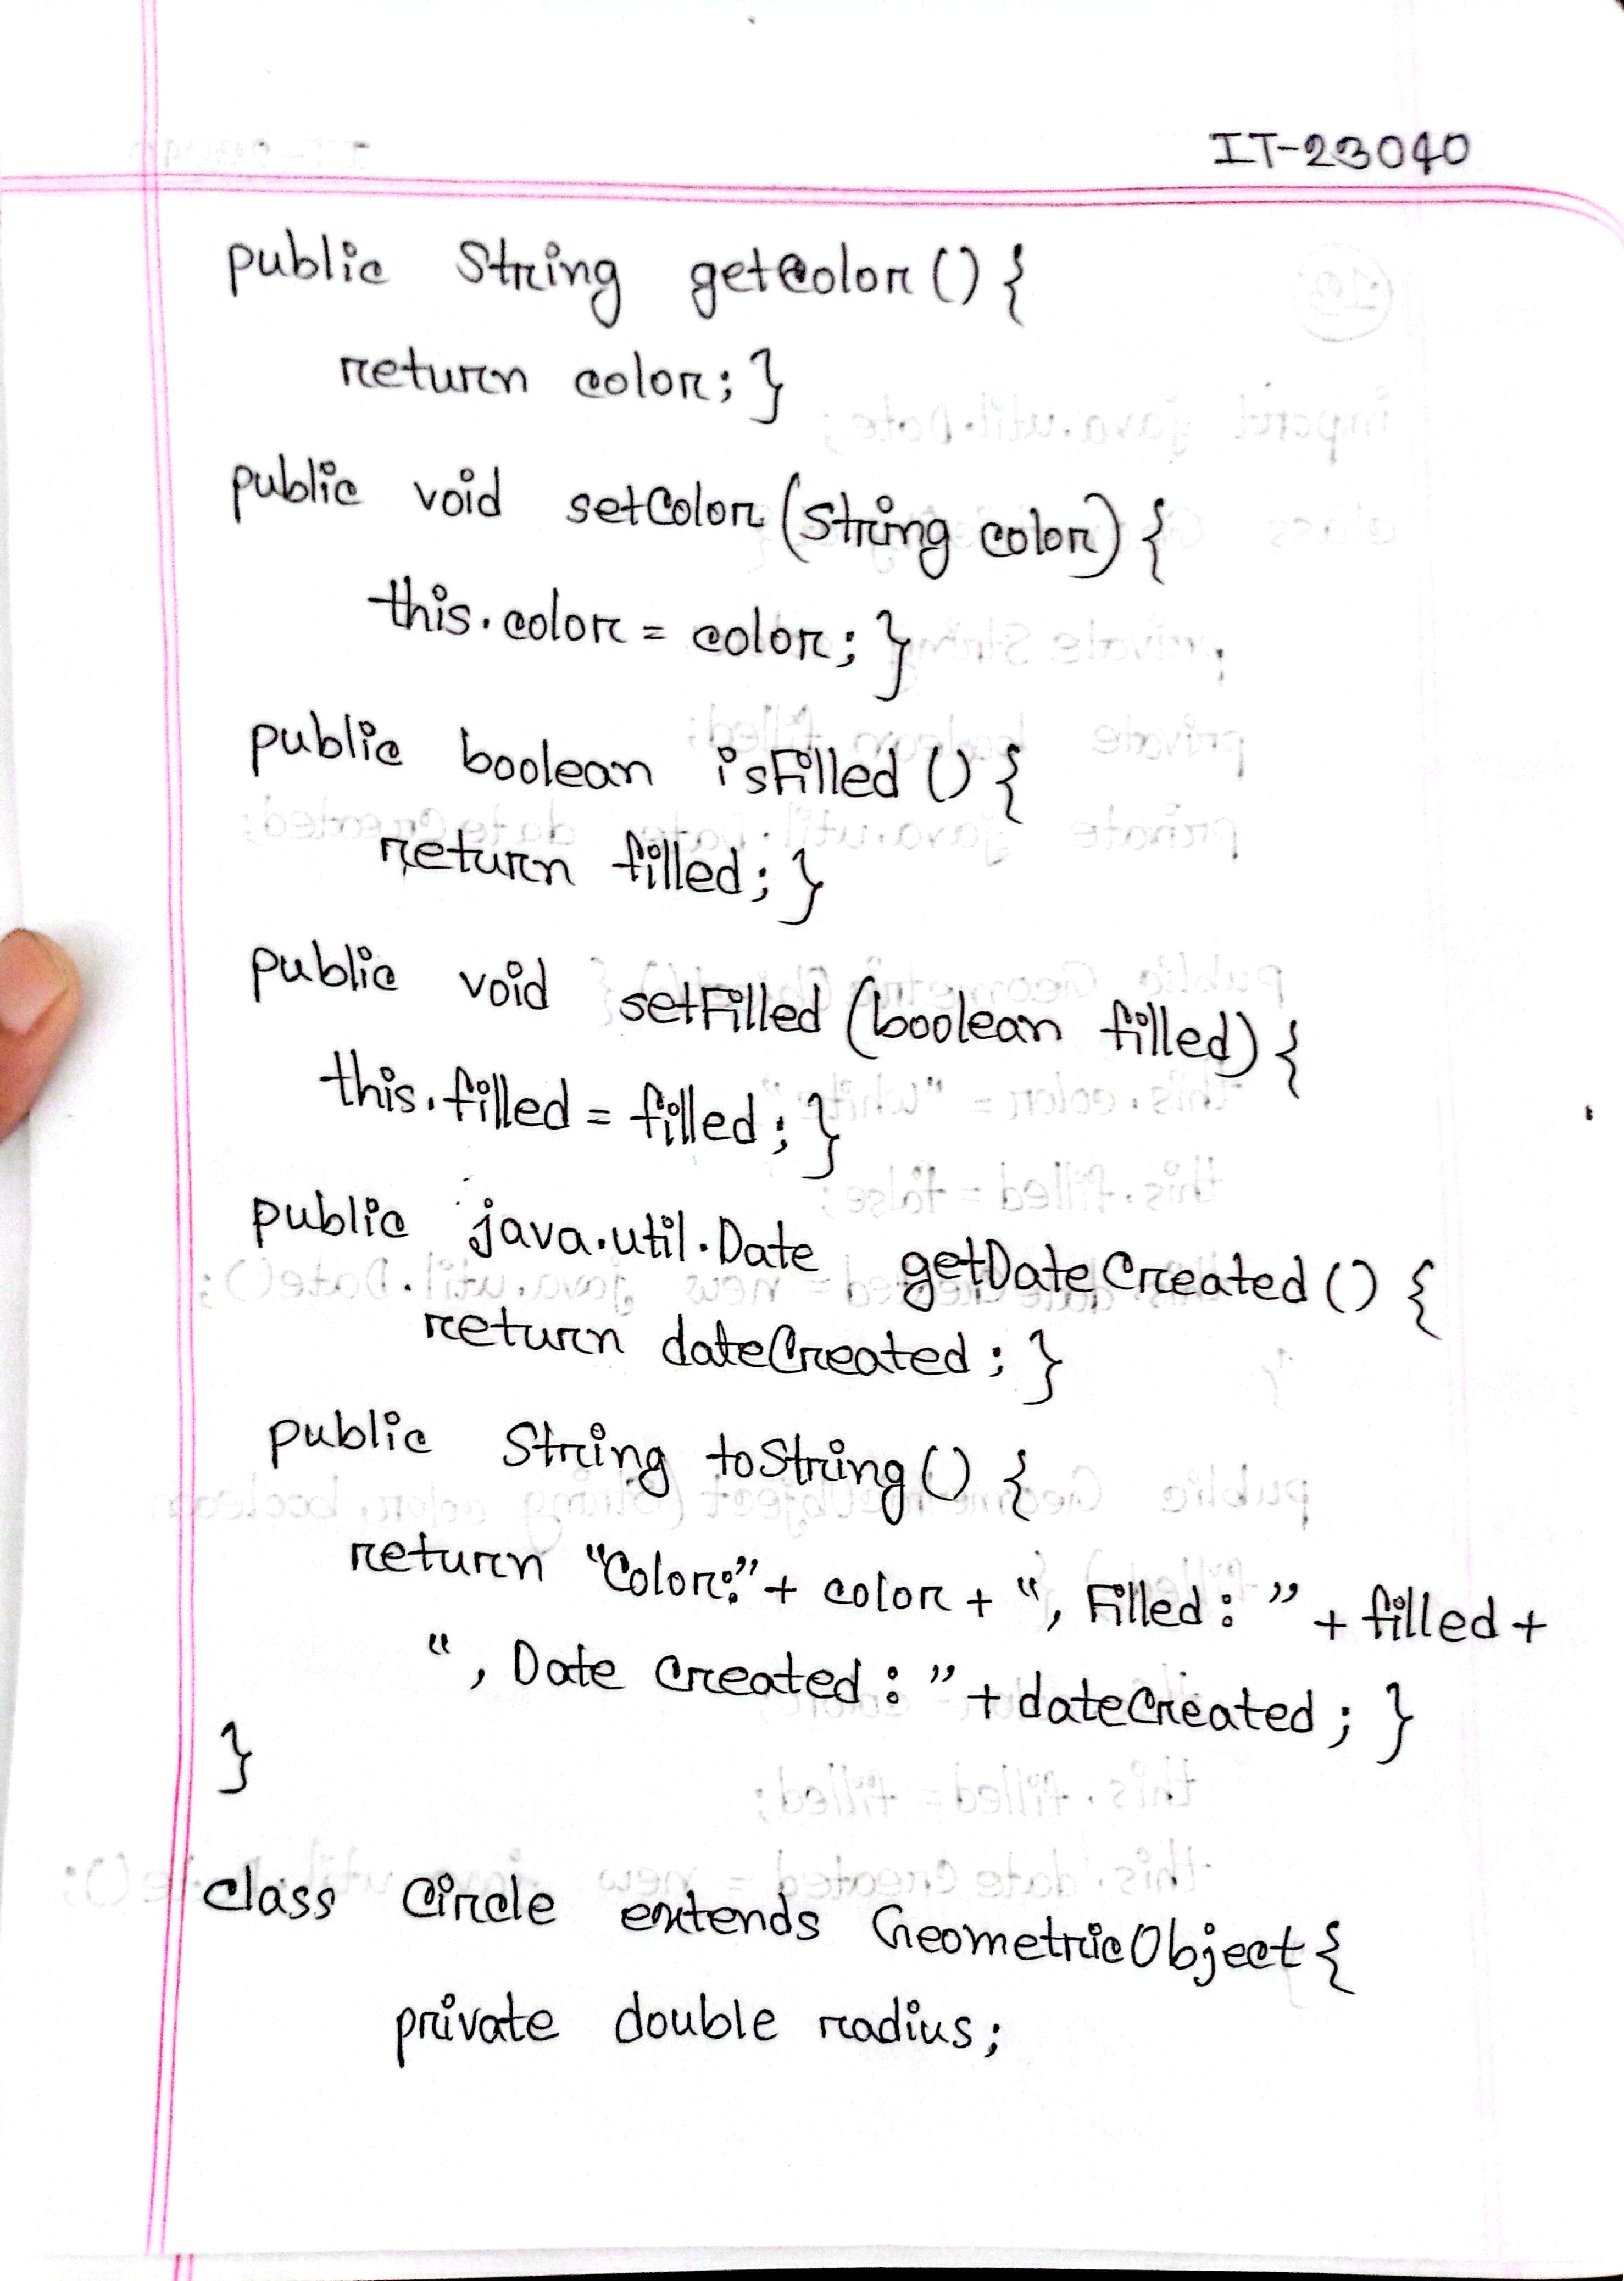 IT-23040
public String getColor() {
return color; }
public void setColor (String color) {
this.color = color; }
public boolean isFilled () {
return filled; }
public void setFilled (boolean filled) {
this.filled = filled; }
public java.util.Date getDateCreated () {
return dateCreated; }
public String toString () {
return "Color:" + color + ", Filled: " + filled +
", Date Created: " + dateCreated; }
}
class Circle extends GeometricObject {
private double radius;